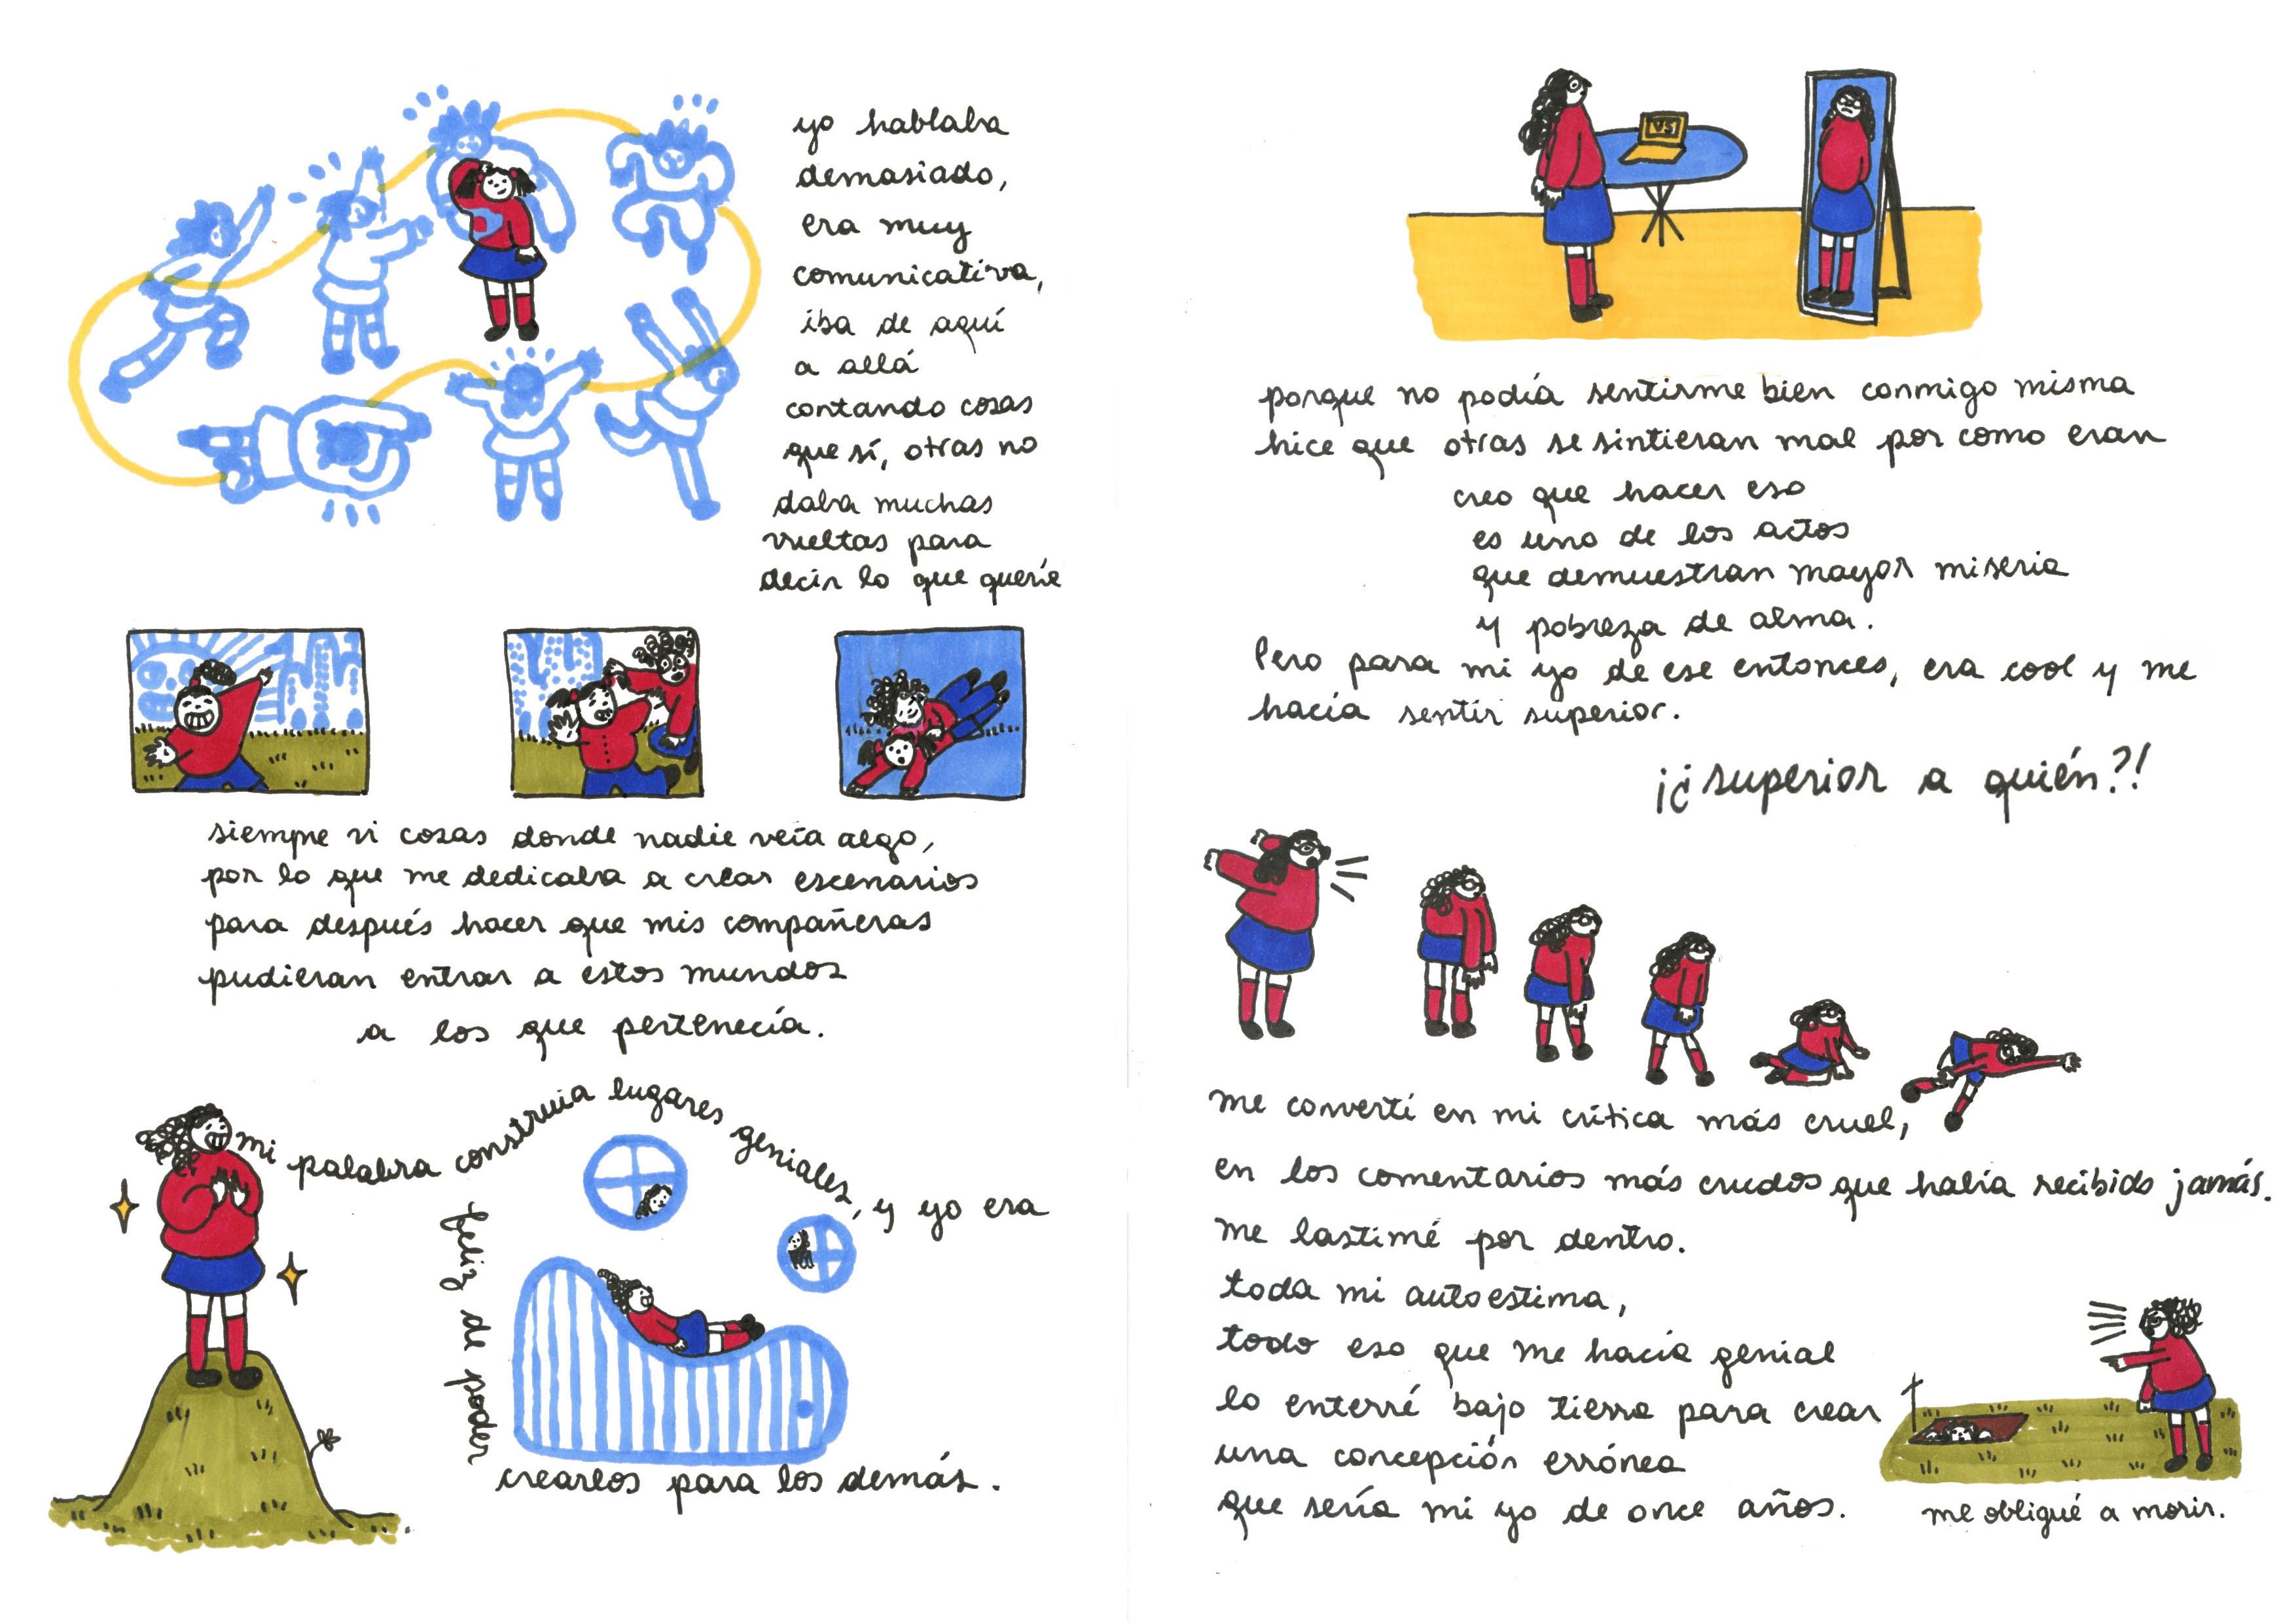 yo hablaba
demasiado,
era muy
comunicativa,
iba de aquí
a allá
contando cosas
que sí, otras no
daba muchas
vueltas para
decir lo que quería
siempre vi cosas donde nadie veía algo,
por lo que me dedicaba a crear escenarios
para después hacer que mis compañeras
pudieran entrar a estos mundos
a los que pertenecía.
mi palabra construia lugares geniales, y yo era
feliz de poder
crearlos para los demás.
VS
porque no podía sentirme bien conmigo misma
hice que otras se sintieran mal por como eran
creo que hacer eso
es uno de los actos
que demuestran mayor miseria
y pobreza de alma.
Pero para mi yo de ese entonces, era cool y me
hacía sentir superior.
¡¿superior a quién?!
me convertí en mi crítica más cruel,
en los comentarios más crudos que había recibido jamás.
me lastimé por dentro.
toda mi autoestima,
todo eso que me hacía genial
lo enterré bajo tierra para crear
una concepción errónea
que sería mi yo de once años.
me obligué a morir.